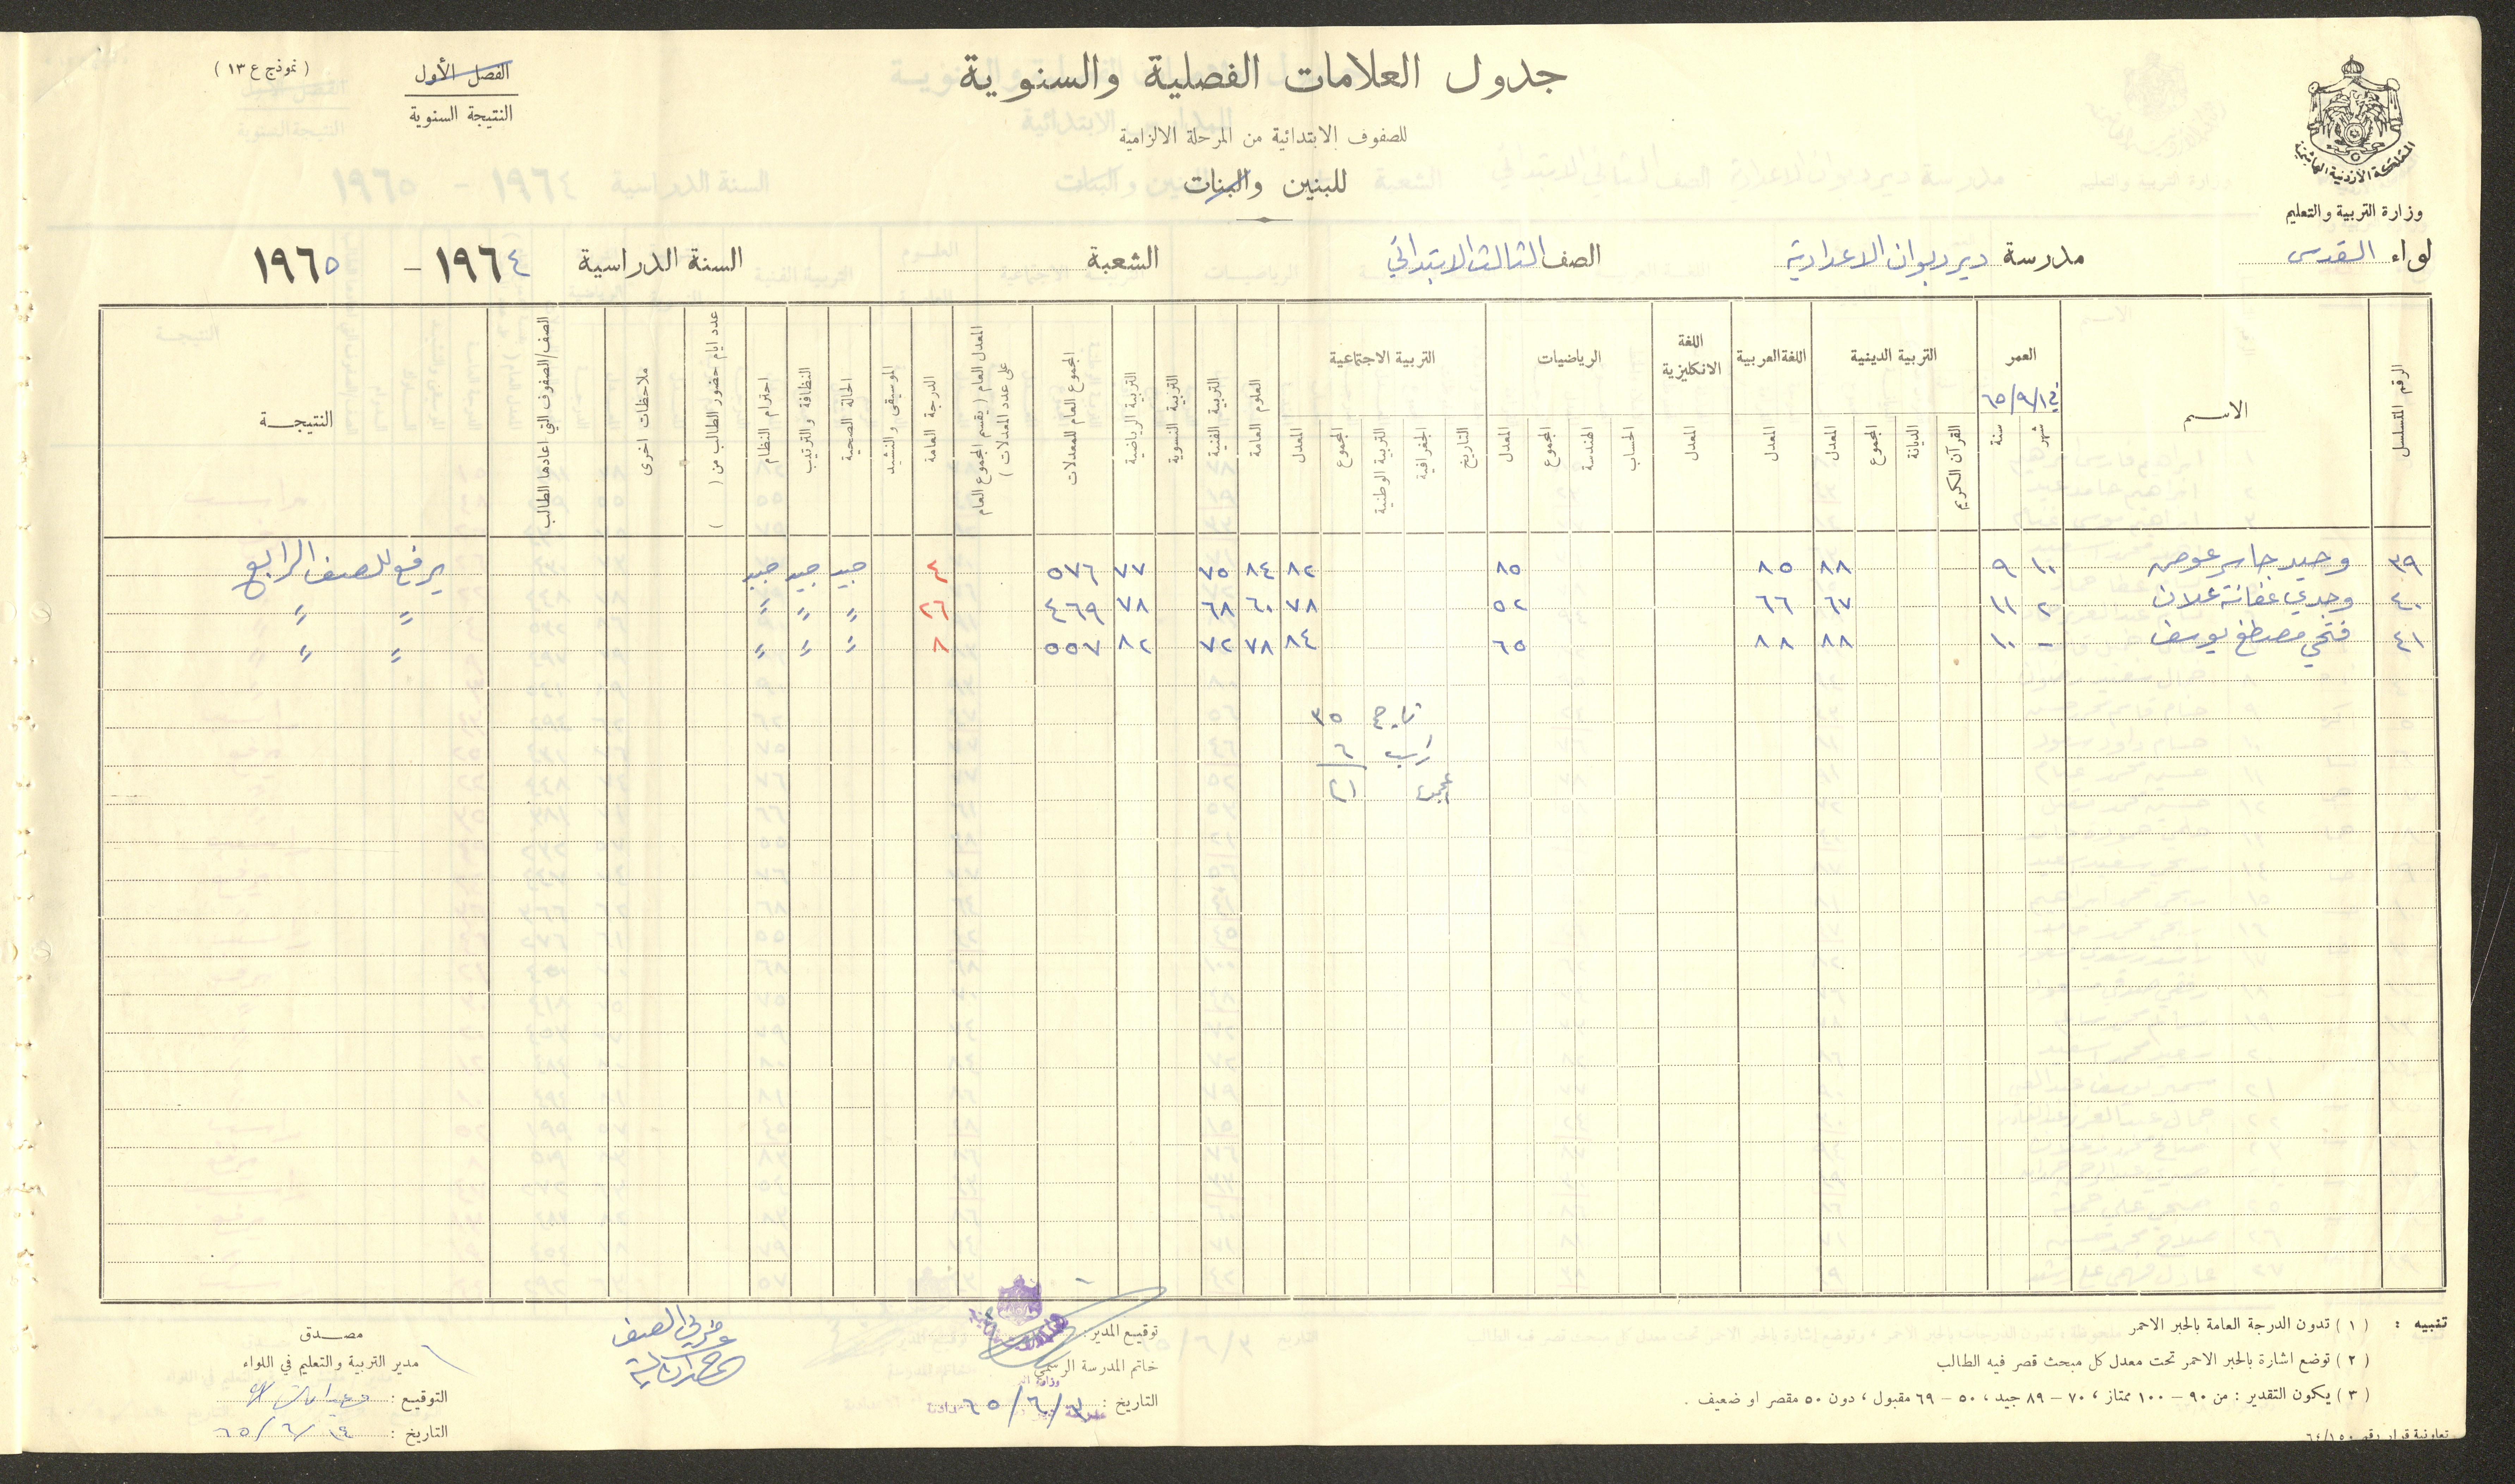 جدول العلامات الفصلية والسنوية
الفصل الأول
النتيجة السنوية
(نموذج ع ١٣)
للصفوف الابتدائية من المرحلة الالزامية
للبنين والبنات
المملكة الأردنية الهاشمية
وزارة التربية والتعليم
لواء القدس مدرسة دير دبوان الاعدادية الصف الثالث الابتدائي الشعبة السنة الدراسية ١٩٦٤ - ١٩٦٥
الرقم المتسلسل
الاسم
العمر
٦٥/٩/١
شهر
سنة
التربية الدينية
القرآن الكريم
الديانة
المجموع
المعدل
اللغة العربية
المعدل
اللغة الانكليزية
المعدل
الرياضيات
الحساب
الهندسة
المجموع
المعدل
التربية الاجتماعية
التاريخ
الجغرافية
التربية الوطنية
المجموع
المعدل
العلوم العامة
التربية الفنية
التربية النسوية
التربية الرياضية
المجموع العام للمعدلات
المعدل العام (يقسم المجموع العام على عدد المعدلات)
الدرجة العامة
الموسيقى والنشيد
الحالة الصحية
النظافة والترتيب
احترام النظام
عدد ايام حضور الطالب من ( )
ملاحظات اخرى
الصف/الصفوف التي اعادها الطالب
النتيجة
٣٩ وحيد جابر عوض ١٠ ٩ ٨٨ ٨٥ ٨٥ ٨٢ ٨٤ ٧٥ ٧٧ ٥٧٦ ٤ جيد جيد جيد يرفع للصف الرابع
٤٠ وجدي عفانة علان ٢ ١١ ٦٧ ٦٦ ٥٢ ٧٨ ٦٠ ٦٨ ٧٨ ٤٦٩ ٢٦〃 〃 〃 〃 〃
٤١ فتحي مصطفى يوسف - ١٠ ٨٨ ٨٨ ٦٥ ٨٤ ٧٨ ٧٢ ٨٢ ٥٥٧ ٨ 〃 〃 〃 〃 〃
ناجح ٣٥
راسب ٦
٤١
تنبيه : (١) تدون الدرجة العامة بالحبر الاحمر
(٢) توضع اشارة بالحبر الاحمر تحت معدل كل مبحث قصر فيه الطالب
(٣) يكون التقدير : من ٩٠ - ١٠٠ ممتاز ، ٧٠ - ٨٩ جيد ، ٥٠ - ٦٩ مقبول ، دون ٥٠ مقصر او ضعيف .
توقيع المدير :
خاتم المدرسة الرسمي
التاريخ : ٦٥/٦/٣
مربي الصف
مصدق
مدير التربية والتعليم في اللواء
التوقيع :
التاريخ : ١٤/٦/٦٥
تعاونية قرار رقم ٦٤/١٥٠